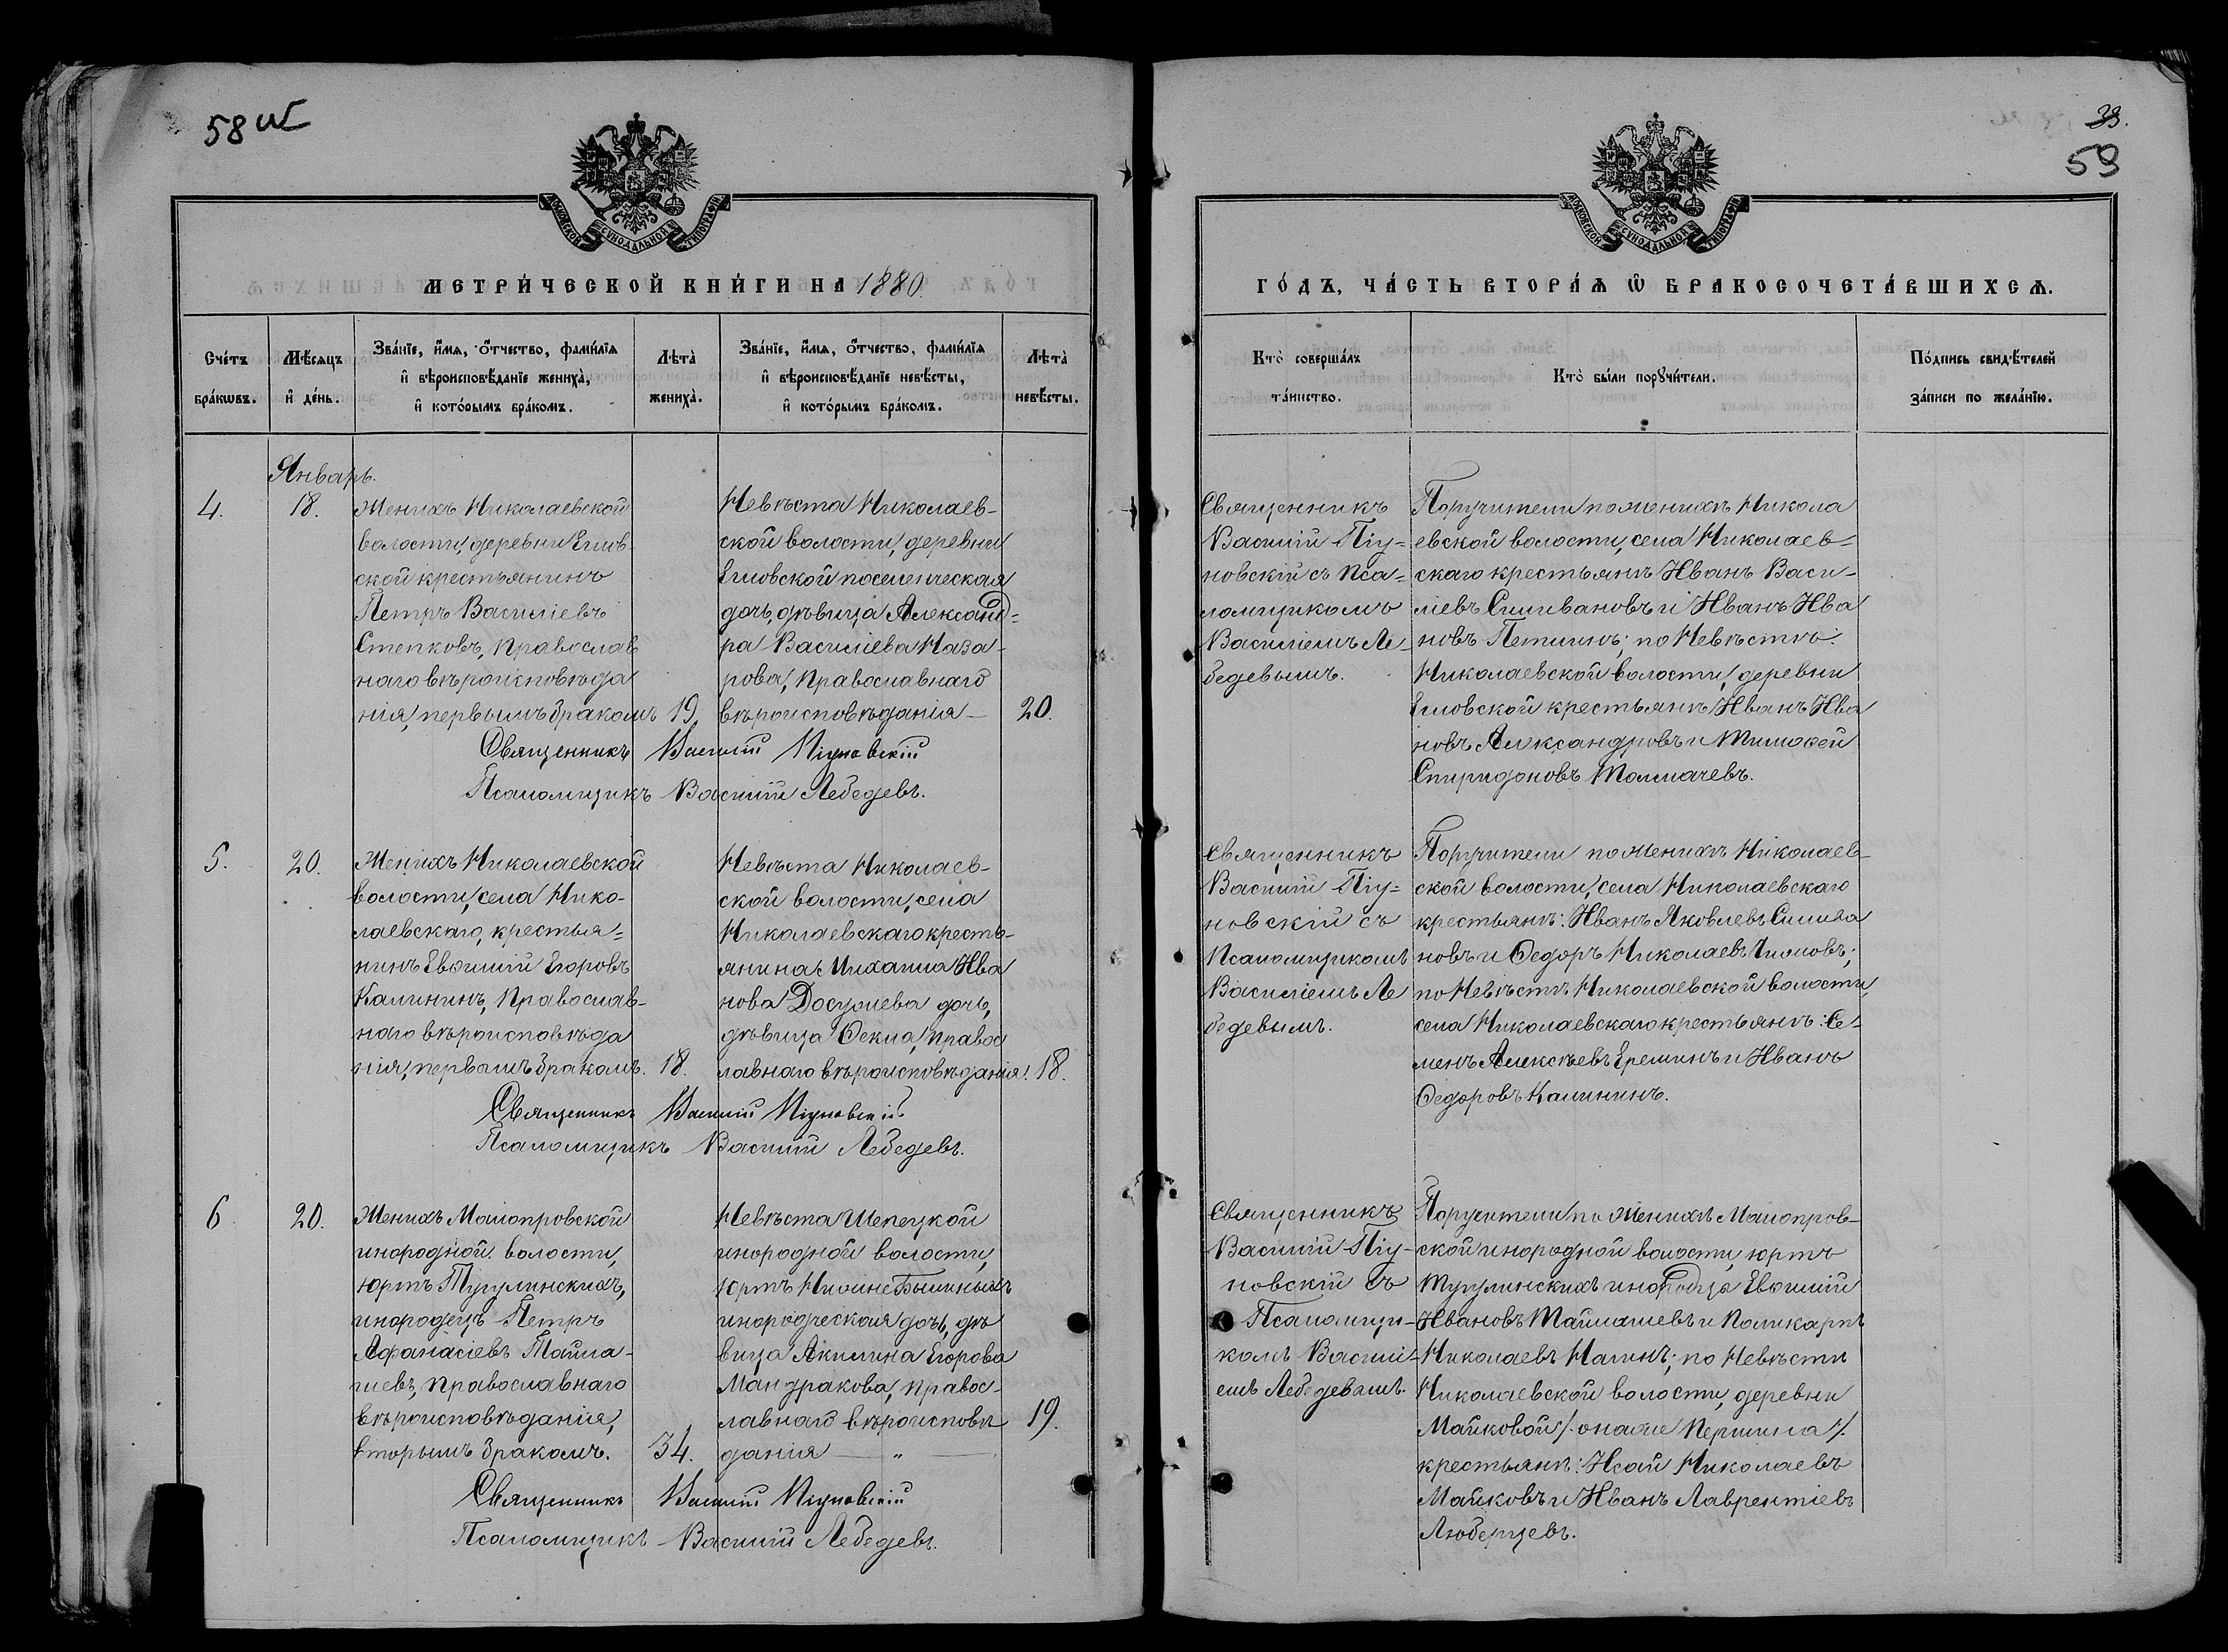 58 об
МОСКОВСКОЙ СѴНОДАЛЬНОЙ ТИПОГРАФІИ
МЕТРИ́ЧЕСКОЙ КНИ́ГИ НА 1880.
Сче́тъ бра́кѡвъ.
Мѣ́сяцъ и҆ де́нь.
Зва́нїе, и҆́мѧ, ѻ҆́тчество, фами́лїѧ
и҆ вѣроисповѣ́данїе жениха̀,
и҆ кото́рымъ бра́комъ.
Лѣта̀ жениха̀.
Зва́нїе, и҆́мѧ, ѻ҆́тчество, фами́лїѧ
и҆ вѣроисповѣ́данїе невѣ́сты,
и҆ кото́рымъ бра́комъ.
Лѣта̀ невѣ́сты.
Январь.
4.
18.
Женихъ Николаевской
волости, деревни Еглов-
ской крестьянинъ
Петръ Василіевъ
Степковъ, православ
наго вѣроисповѣда
нія, первымъ бракомъ
19.
Невѣста Николаев-
ской волости, деревни
Егловской поселенческая
дочь, дѣвица Александ-
ра Василіева Наза-
рова, православнаго
вѣроисповѣданія —
20.
Священникъ Василій Піуновскій
Псаломщикъ Василій Лебедевъ.
5.
20.
Женихъ Николаевской
волости, села Нико-
лаевскаго, крестья=
нинъ Евѳимій Егоровъ
Калининъ, православ-
наго вѣроисповѣда
нія, первымъ бракомъ.
18.
Невѣста Николаев-
ской волости, села
Николаевскаго кресть-
янина Михаила Ива
нова дочь,
дѣвица Ѳекла, правос
лавнаго вѣроисповѣданія.
18.
Священникъ Василій Піуновскій
Псаломщикъ Василій Лебедевъ.
6
20.
Женихъ Малопровской
инородной волости,
юртъ Тугулинскихъ,
инородецъ Петръ
Афанасіевъ Тайла-
шевъ, православнаго
вѣроисповѣданія,
вторымъ бракомъ.
34.
Невѣста Шепецкой
инородной волости,
юртъ
инородческая дочь, дѣ
вица Акилина Егорова
Мандракова, правос-
лавнаго вѣроисповѣ
данія — „ —
19.
Священникъ Василій Піуновскій
Псаломщикъ Василій Лебедевъ.
39.
59
МОСКОВСКОЙ СѴНОДАЛЬНОЙ ТИПОГРАФІИ
ГО́ДЪ, ЧА́СТЬ ВТОРА́Ѧ Ѽ БРАКОСОЧЕТА́ВШИХСѦ.
Кто̀ соверша́лъ та́инство.
Кто̀ бы́ли порꙋчи́тели.
По́дпись свидѣ́телей за́писи по жела́нїю.
Священникъ
Василій Піу=
новскій съ Пса=
ломщикомъ
Василіемъ Ле-
бедевымъ.
Поручители по женихѣ Никола
евской волости, села Николаев=
скаго крестьянѣ Иванъ Васи-
ліевъ Селивановъ и Иванъ Ива
новъ Петлинъ; по Невѣстѣ:
Николаевской волости, деревни
Егловской крестьянѣ Иванъ Ива
новъ Александровъ и Тимоѳей
Спиридоновъ Толмачевъ.
Священникъ
Василій Піу=
новскій съ
Псаломщикомъ
Василіемъ Ле
бедевымъ.
Поручители по Женихѣ Николаев-
ской волости, села Николаевскаго
крестьянѣ: Иванъ Яковлевъ Селива
новъ и Ѳедоръ Николаевъ;
по Невѣстѣ Николаевской волости,
села Николаевскаго крестьянѣ: Се-
менъ Алексѣевъ Ереминъ и Иванъ
Ѳедоровъ Калининъ.
Священникъ
Василій Піу-
новскій съ
Псаломщи-
комъ Василі-
емъ Лебедевымъ.
Поручители по Женихѣ Малопров-
ской инородной волости, юртъ
Тугулинскихъ инородца Евѳимій
Ивановъ Тайлашевъ и Поликарпъ
Николаевъ; по Невѣстѣ
Николаевской волости, деревни
Майковой /. онаже Першина /.
крестьянѣ: Исай Николаевъ
Майковъ и Иванъ Лаврентіевъ
Люберцевъ.